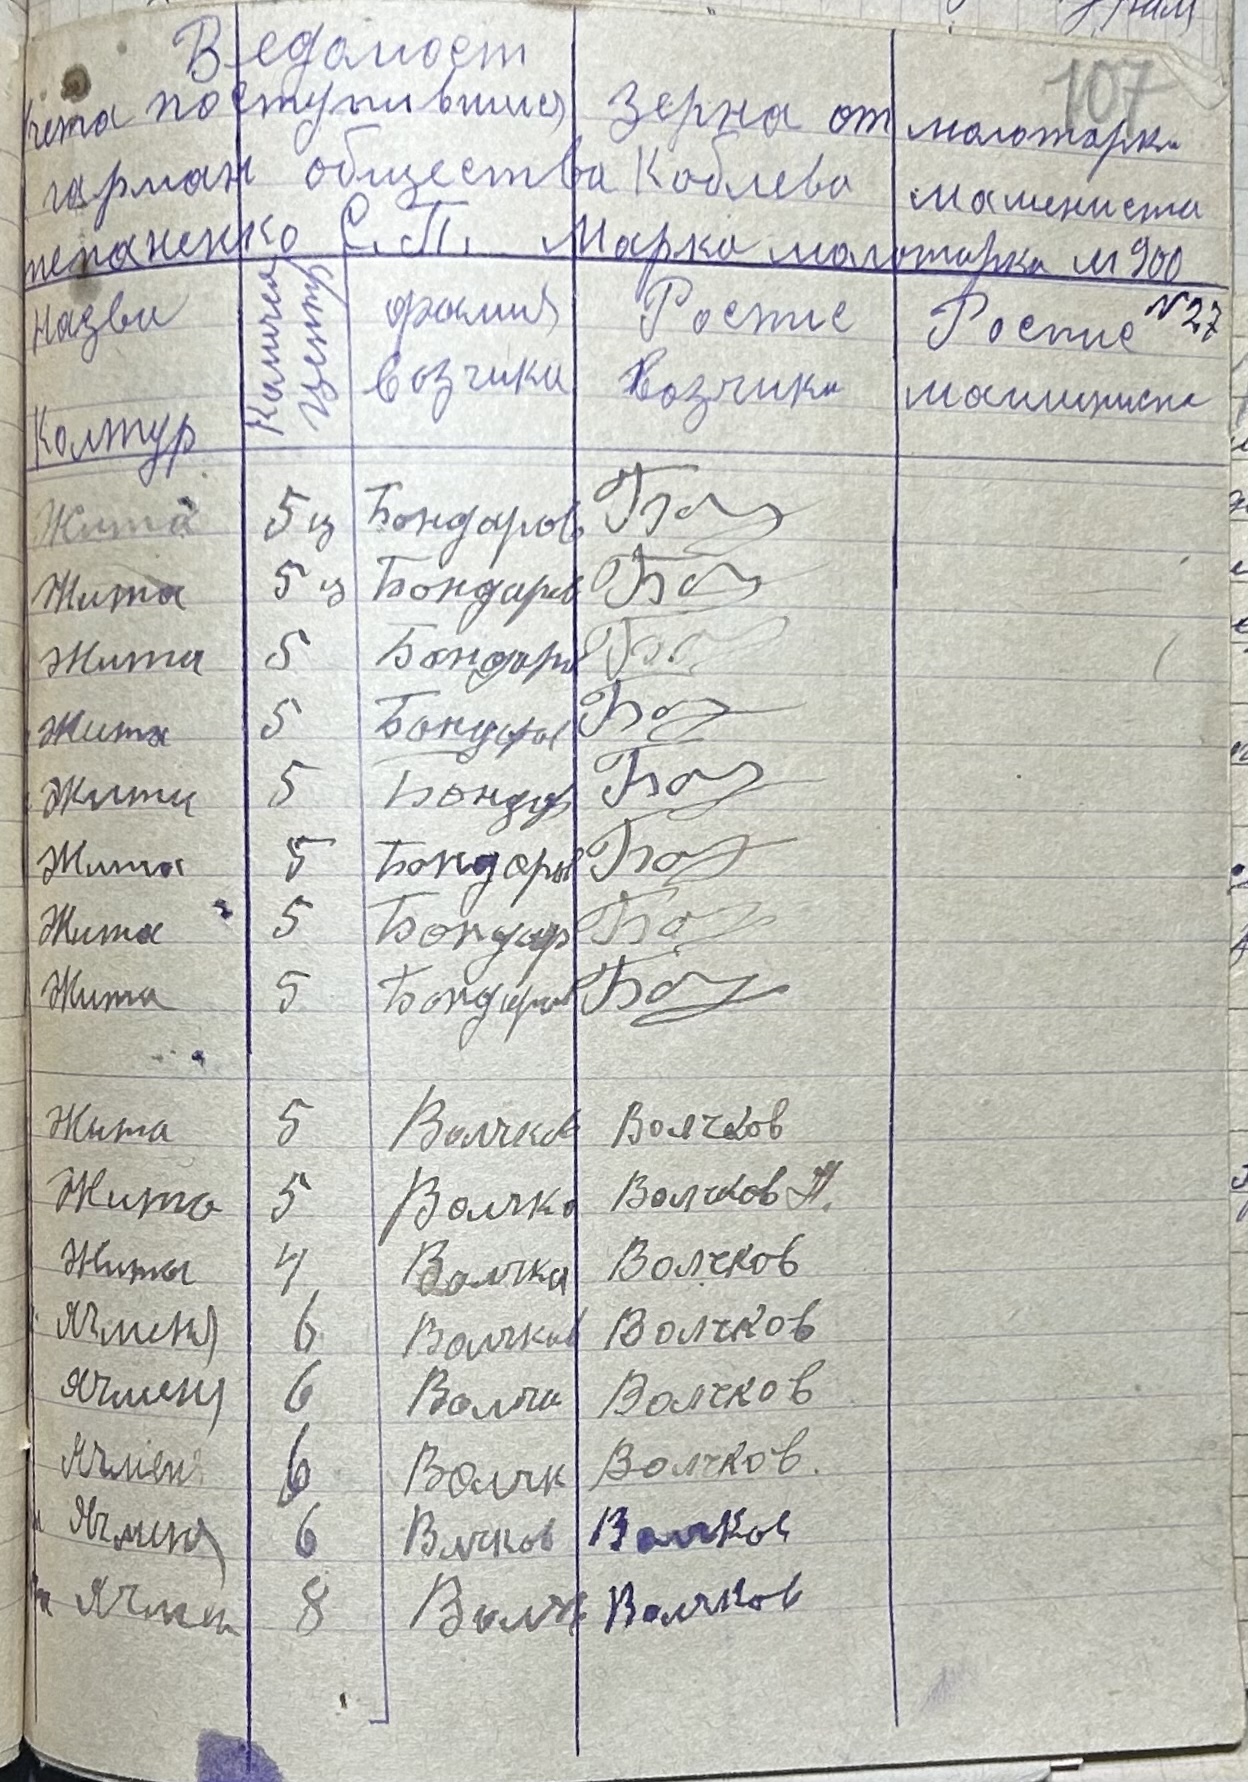 107
Ведамост
чета поступивший Зерна от малотарки
гарман общества Коблева машениста
тепаненко С.П. Марка малотарка М 900
№27
Назва Количе Центр фамия Роспис Роспис
Колтур возчика возчика машиниста
Жита 5ц Бондаров Бо
Жита 5ц Бондаров Бо
Жита 5 Бондаро Бо
Жита 5 Бондаров Бо
Жита 5 Бондар Бо
Жита 5 Бондаров Бо
Жита 5 Бондар Бо
Жита 5 Бондаров Бо
Жита 5 Волчков Волчков
Жито 5 Волчко Волчков П.
Житы 4 Волчка Волчков
Ячменя 6 Волчков Волчков
Ячменя 6 Волчк Волчков
Ячменя 6 Волчк Волчков.
Ячменя 6 Влчков Волчков
Ячмен 8 Волчк Волчков